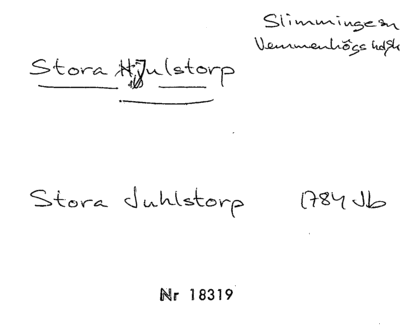 Slimminge sn
Vemmenhögs hd
Stora Julstorp
Stora Juhlstorp 1784 Jb
Nr 18319